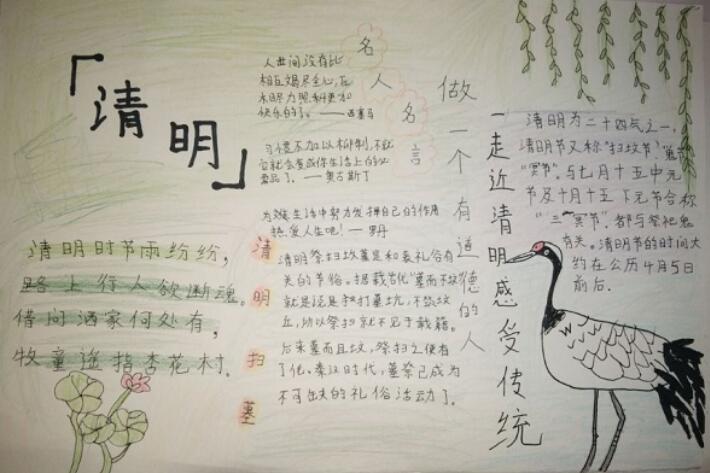 「清明」
清明时节雨纷纷，
路上行人欲断魂。
借问酒家何处有，
牧童遥指杏花村。
名人名言
人世间没有比
相互竭尽全心，互
快乐的了。——西塞马
习惯不加以抑制，不久
它就会变成你生活上的必
需品了。——奥古斯丁
热爱人生吧！——罗丹
清明扫墓
清明祭扫坟墓是和丧礼俗有
关的节俗。据载古代“墓而不坟”
就是说只打墓坑，不筑坟
丘，所以祭扫就不见于载籍。
后来墓而且坟，祭扫之便有
了化。秦汉时代，墓祭已成为
不可或缺的礼俗活动了。
做一个有道德的人
走近清明感受传统
清明为二十四气之一，
清明节又称“扫坟节”“鬼节”
“冥节”。与七月十五中元
节及十月十五下元节合称
“三冥节”，都与祭祀鬼
有关。清明节的时间大
约在公历4月5日
前后.